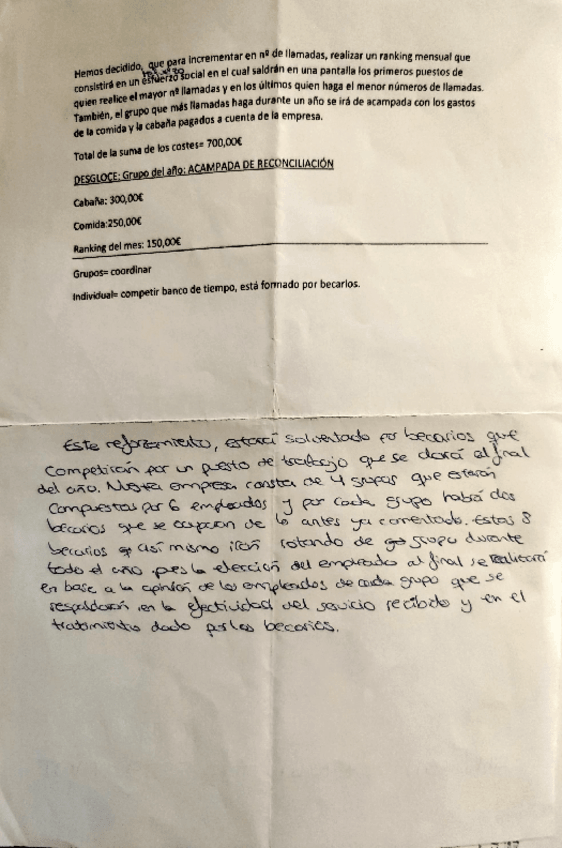 Hemos decidido, que para incrementar en nº de llamadas, realizar un ranking mensual que
consistirá en un esfuerzo social en el cual saldrán en una pantalla los primeros puestos de
quien realice el mayor nº llamadas y en los últimos quien haga el menor números de llamadas.
También, el grupo que más llamadas haga durante un año se irá de acampada con los gastos
de la comida y la cabaña pagados a cuenta de la empresa.
Total de la suma de los costes= 700,00€
DESGLOCE: Grupo del año: ACAMPADA DE RECONCILIACIÓN
Cabaña: 300,00€
Comida:250,00€
Ranking del mes: 150,00€
Grupos= coordinar
Individual= competir banco de tiempo, está formado por becarios.
Este reforzamiento, estará solventado por becarios que
competirán por un puesto de trabajo que se dará al final
del año. Nuestra empresa consta de 4 grupos que estarán
compuestas por 6 empleados, y por cada grupo habrá dos
becarios que se ocupan de lo antes ya comentado. Estos 8
becarios así mismo irán rotando de grupo durante
todo el año pues la elección del empleado al final se realizará
en base a la opinión de los empleados de cada grupo que se
respaldarán en la efectividad del servicio recibido y en el
tratamiento dado por los becarios.